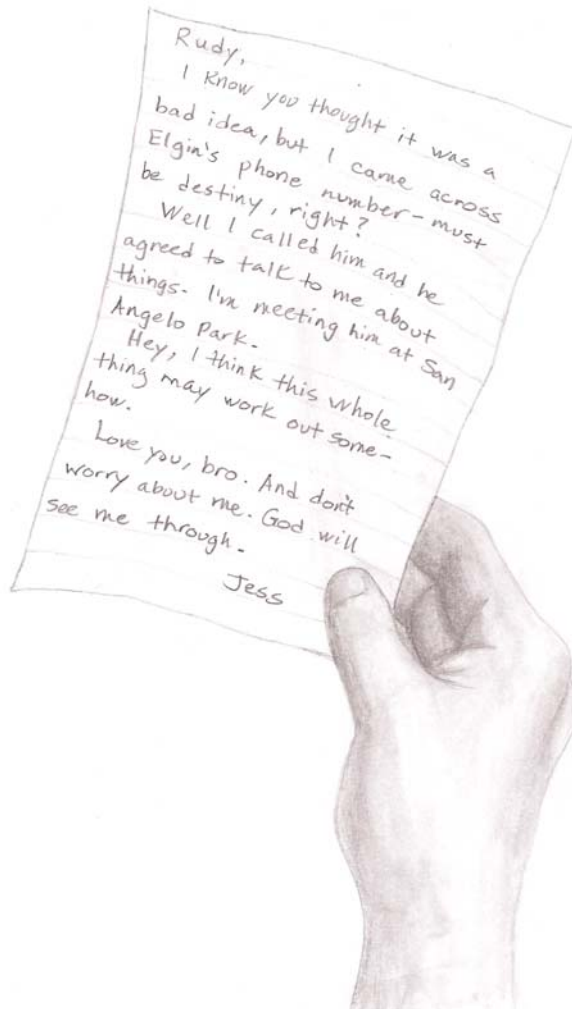 Rudy,
I know you thought it was a
bad idea, but I came across
Elgin's phone number - must
be destiny, right?
Well I called him and he
agreed to talk to me about
things. I'm meeting him at San
Angelo Park.
Hey, I think this whole
thing may work out some-
how.
Love you, bro. And don't
worry about me. God will
see me through.
Jess